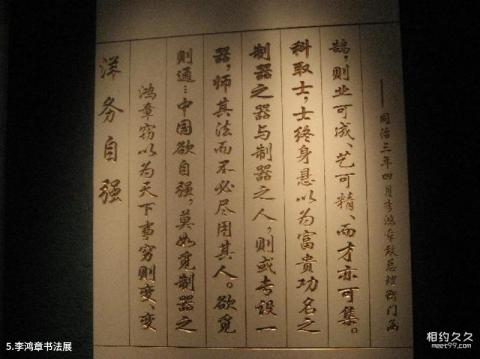 洋务自强
鸿章窃以为天下事穷则变、变
则通…中国欲自强，莫如觅制器之
器，师其法而不必尽用其人。欲觅
制器之器与制器之人，则或专设一
科取士，士终身悬以为富貴功名之
鹄，则业可成、艺可精、而才亦可集。
——同治三年四月李鸿章致总理衙门函
5.李鸿章书法展
相约久久
meet99.com